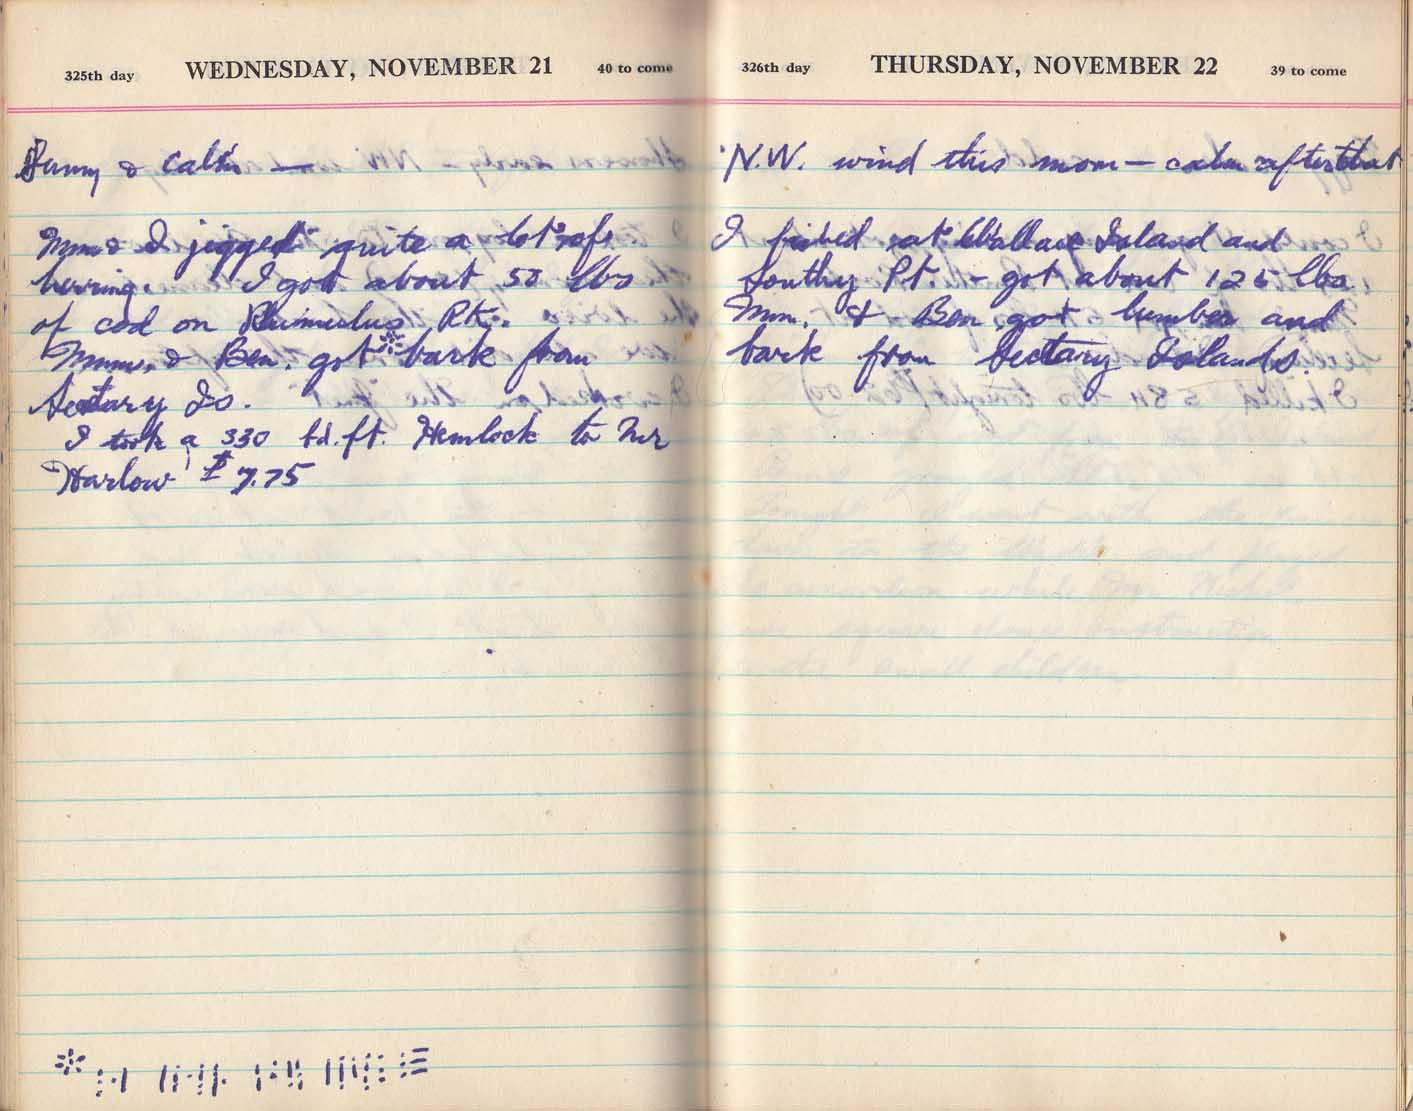 325th day WEDNESDAY, NOVEMBER 21 40 to come
Sunny & calm —
Mm & I jigged quite a lot of
herring. I got about 50 lbs
of cod on Rk.
Mm. & Ben. got bark from
Sectary Is.
I took a 330 bd. ft. Hemlock to Mr
Harlow $7.75
326th day THURSDAY, NOVEMBER 22 39 to come
N.W. wind this morn — calm after that
I fished at Wallace Island and
Southy Pt. - got about 125 lbs
Mm. & Ben got lumber and
bark from Sectary Islands.